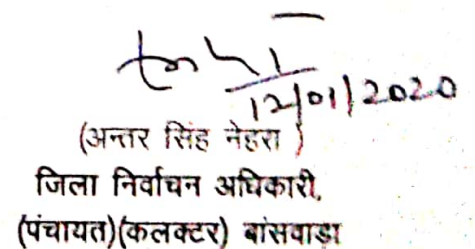 12/01/2020
(अन्तर सिंह नेहरा )
जिला निर्वाचन अधिकारी,
(पंचायत)(कलक्टर) बांसवाडा